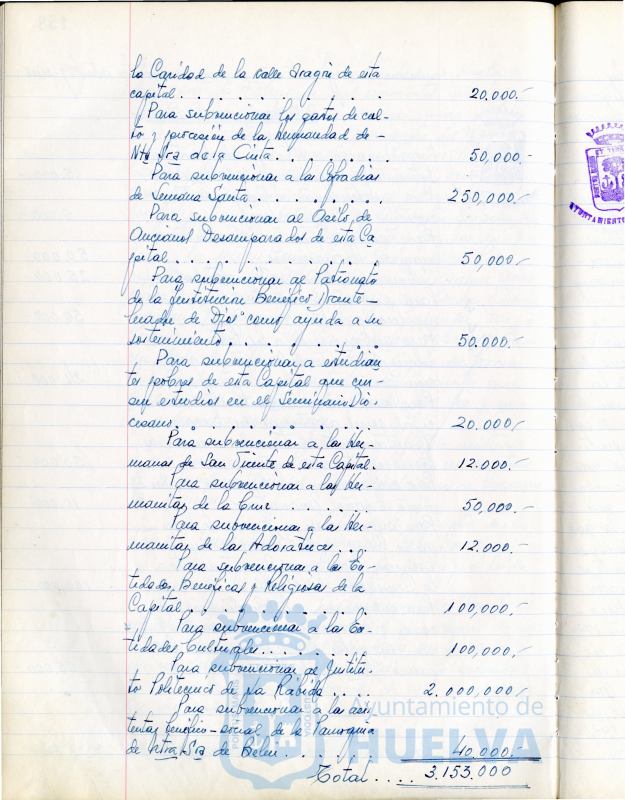 la Caridad de la calle Aragón de esta
capital . . . . . . . . . 20.000.-
Para subvencionar los gastos de cul-
to y procesión de la Hermandad de-
Ntra Sra de la Cinta . . . . . . 50,000.-
Para subvencionar a las Cofradias
de Semana Santa . . . . . . . 250,000.-
Para subvencionar al Asilo de
Ancianos Desamparados de esta Ca
pital . . . . . . . . . 50,000.-
Para subvencionar al Patronato
de la Institucion Benéfico Docente-
de Dios" como ayuda a su
sostenimiento . . . . . . . 50.000.-
Para subvencionar a estudian
tes pobres de esta Capital que cur-
sen estudios en el Seminario Dio-
cesano . . . . . . . . . 20.000.-
Para subvencionar a las Her-
manas de San Vicente, de esta Capital. 12.000.-
Para subvencionar a las Her-
manitas de la Cruz . . . . . . 50,000.-
Para subvencionar a las Her-
manitas de las Adoratrices . . . 12.000.-
Para subvencionar a las En-
tidades, Benéficas y Religiosas de la
Capital . . . . . . . . . 100,000.-
Para subvencionar a las En-
tidades Culturales . . . . . . 100,000.-
Para subvencionar al Institu-
to Politecnico de La Rabida . . . . 2.000,000.-
Para subvencionar a las
benéfico-social de la Parroquia
de Ntra. Sra de Belen . . . . . 40.000.-
Total . . . . 3.153.000
Ayuntamiento de
HUELVA
AYUNTAMIENTO